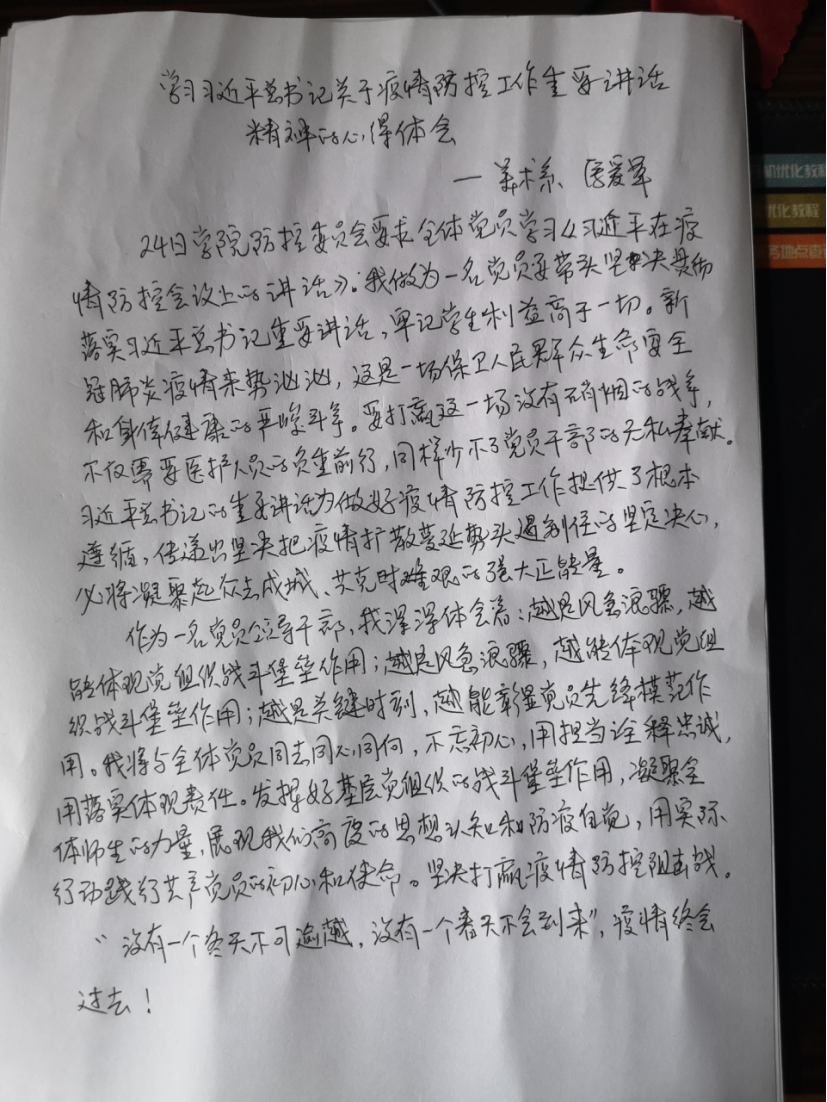 学习习近平总书记关于疫情防控工作重要讲话
精神的心得体会
— 美术系、爱军
24日学院防控委员会要求全体党员学习《习近平在疫
情防控会议上的讲话》。我做为一名党员要带头坚决贯彻
落实习近平总书记重要讲话,牢记学生利益高于一切。新
冠肺炎疫情来势汹汹,这是一场保卫人民群众生命安全
和身体健康的严峻斗争。要打赢这一场没有硝烟的战争,
不仅需要医护人员的负重前行,同样少不了党员干部的无私奉献。
习近平总书记的重要讲话为做好疫情防控工作提供了根本
遵循,传递出坚决把疫情扩散蔓延势头遏制住的坚定决心,
必将凝聚起众志成城、共克时难艰的强大正能量。
作为一名党员领导干部,我深深体会着:越是风急浪骤,越
能体现党组织战斗堡垒作用;越是风急浪骤,越能体现党组
织战斗堡垒作用;越是关键时刻,越能彰显党员先锋模范作
用。我将与全体党员同志同心同向,不忘初心,用担当诠释忠诚,
用落实体现责任。发挥好基层党组织的战斗堡垒作用,凝聚全
体师生的力量,展现我们高度的思想认知和防疫自觉,用实际
行动践行共产党员的初心和使命。坚决打赢疫情防控阻击战。
“没有一个冬天不可逾越,没有一个春天不会到来”,疫情终会
过去!
机优化教程
优化教程
务地点查询